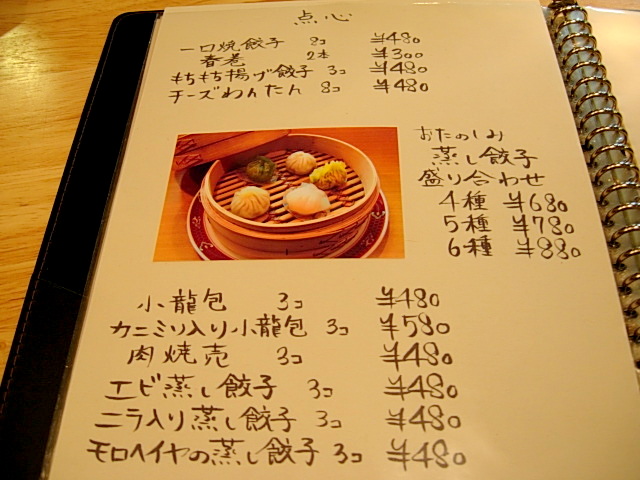 点心
一口焼餃子 8コ ¥480
春巻 2本 ¥300
もちもち揚げ餃子 3コ ¥480
チーズわんたん 8コ ¥480
おたのしみ
蒸し餃子
盛り合わせ
4種 ¥680
5種 ¥780
6種 ¥880
小龍包 3コ ¥480
カニミソ入り小龍包 3コ ¥580
肉焼売 3コ ¥480
エビ蒸し餃子 3コ ¥480
ニラ入り蒸し餃子 3コ ¥480
モロヘイヤの蒸し餃子 3コ ¥480